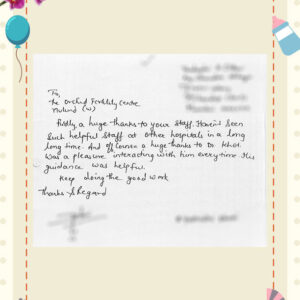 To,
The Orchid Fertility Centre
Mulund (W)
Firstly a huge thanks to your staff. Haven't seen
such helpful staff at other hospitals in a long
long time. And off course a huge thanks to Dr.
Was a pleasure interacting with him everytime. His
guidance was helpful.
Keep doing the good work
Thanks & Regard